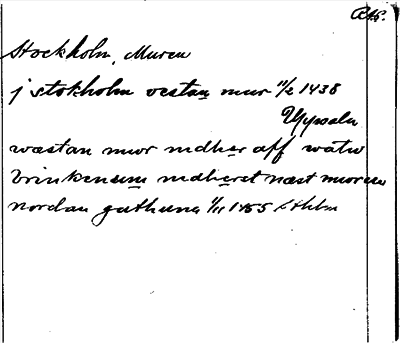 Ack.
Stockholm, Muren
j stokholm vestan mur 11/2 1438
Uppsala
wæstan mur nidher aff watu
brinkenum nidheret næst muren
nordan gathuna 1/11 1455 Sthlm